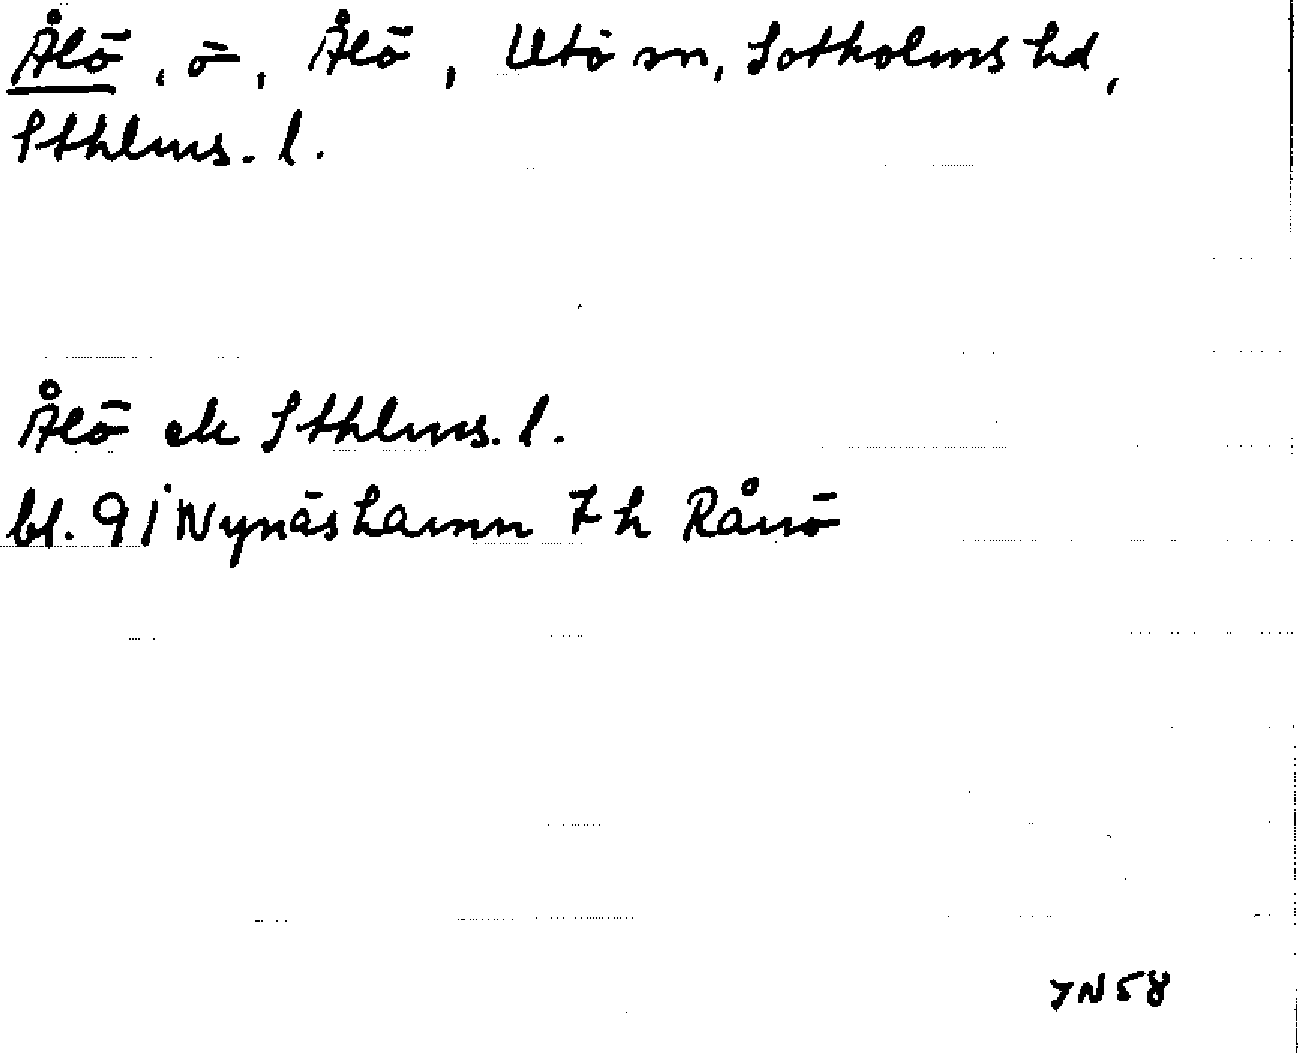 Ålö, ö, Ålö, Utö sn, Sotholms hd,
Sthlms. l.
Ålö ek Sthlms. l.
bl. 91 Nynäshamn 7 h Rånö
JN 58